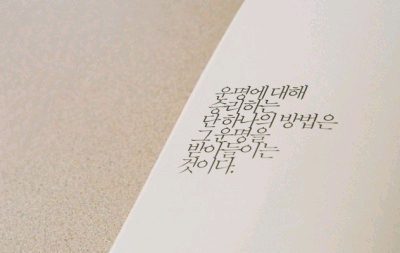 운명에 대해
승리하는
단 하나의 방법은
그 운명을
받아들이는
것이다.